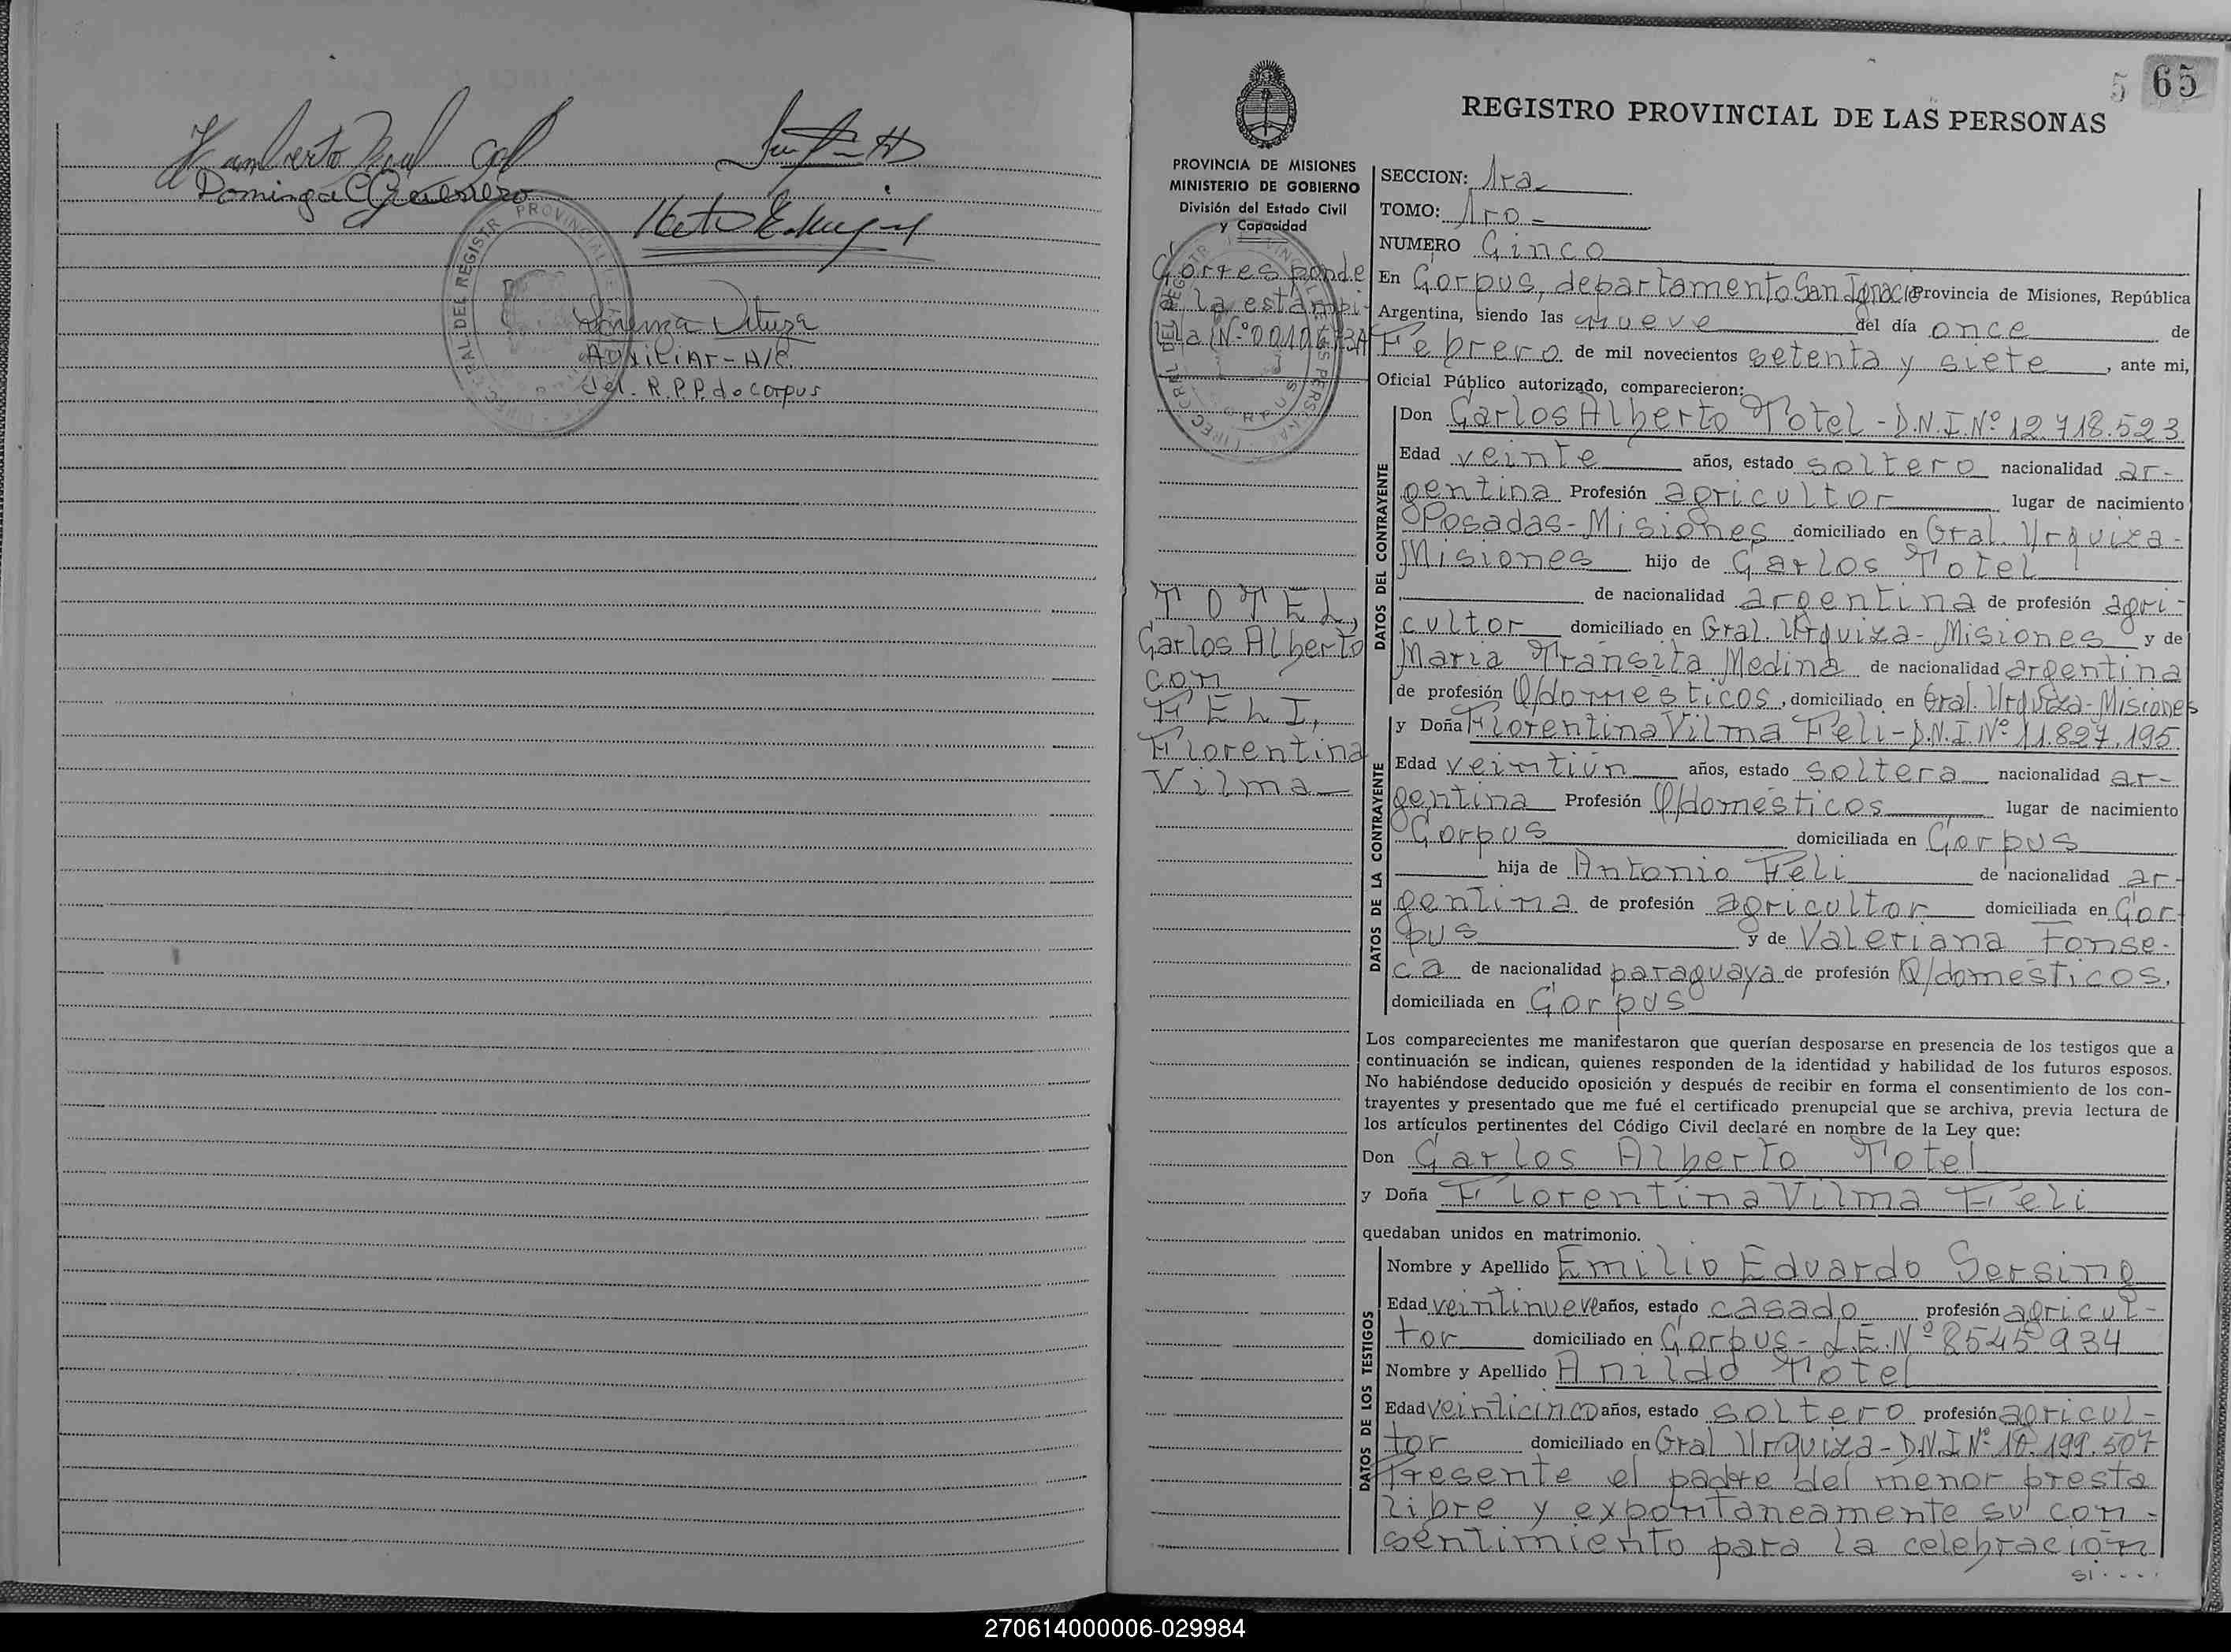 Dominga C Guerrero
Auxiliar - A/C.
del. R.P.P. de Corpus
5 65
REGISTRO PROVINCIAL DE LAS PERSONAS
PROVINCIA DE MISIONES
MINISTERIO DE GOBIERNO
División del Estado Civil
y Capacidad
SECCION: 1ra
TOMO: 1ro
NUMERO Cinco
Corresponde
a la estampi-
lla Nº
TOTEL,
Carlos Alberto
con
FELI,
Florentina
Vilma
En Corpus, departamento San Ignacio Provincia de Misiones, República
Argentina, siendo las nueve del día once de
Febrero de mil novecientos setenta y siete, ante mi,
Oficial Público autorizado, comparecieron:
DATOS DEL CONTRAYENTE
Don Carlos Alberto Totel - D.N.I. Nº 12.718.523
Edad veinte años, estado soltero nacionalidad ar-
gentina Profesión agricultor lugar de nacimiento
Posadas - Misiones domiciliado en Gral. Urquiza -
Misiones hijo de Carlos Totel
de nacionalidad argentina de profesión agri-
cultor domiciliado en Gral. Urquiza - Misiones y de
Maria Transita Medina de nacionalidad argentina
de profesión Q/domesticos, domiciliado en Gral. Urquiza - Misiones
DATOS DE LA CONTRAYENTE
y Doña Florentina Vilma Feli - D.N.I. Nº 11.827.195
Edad veintiún años, estado soltera nacionalidad ar-
gentina Profesión Q/domésticos lugar de nacimiento
Corpus domiciliada en Corpus
hija de Antonio Feli de nacionalidad ar-
gentina de profesión agricultor domiciliada en Cor-
pus y de Valeriana Fonse-
ca de nacionalidad paraguaya de profesión Q/domésticos,
domiciliada en Corpus
Los comparecientes me manifestaron que querían desposarse en presencia de los testigos que a
continuación se indican, quienes responden de la identidad y habilidad de los futuros esposos.
No habiéndose deducido oposición y después de recibir en forma el consentimiento de los con-
trayentes y presentado que me fué el certificado prenupcial que se archiva, previa lectura de
los artículos pertinentes del Código Civil declaré en nombre de la Ley que:
Don Carlos Alberto Totel
y Doña Florentina Vilma Feli
quedaban unidos en matrimonio.
DATOS DE LOS TESTIGOS
Nombre y Apellido Emilio Eduardo Sersing
Edad veintinueve años, estado casado profesión agricul-
tor domiciliado en Corpus - L.E. Nº 8545.934
Nombre y Apellido Anildo Totel
Edad veinticinco años, estado soltero profesión agricul-
tor domiciliado en Gral Urquiza - D.N.I Nº 10.199.507
Presente el padre del menor presta
libre y expontaneamente su con-
sentimiento para la celebración
si....
270614000006-029984